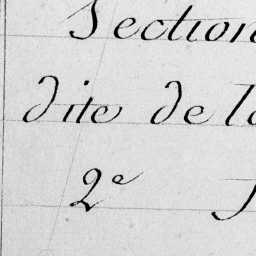 Section
dite de la
2e